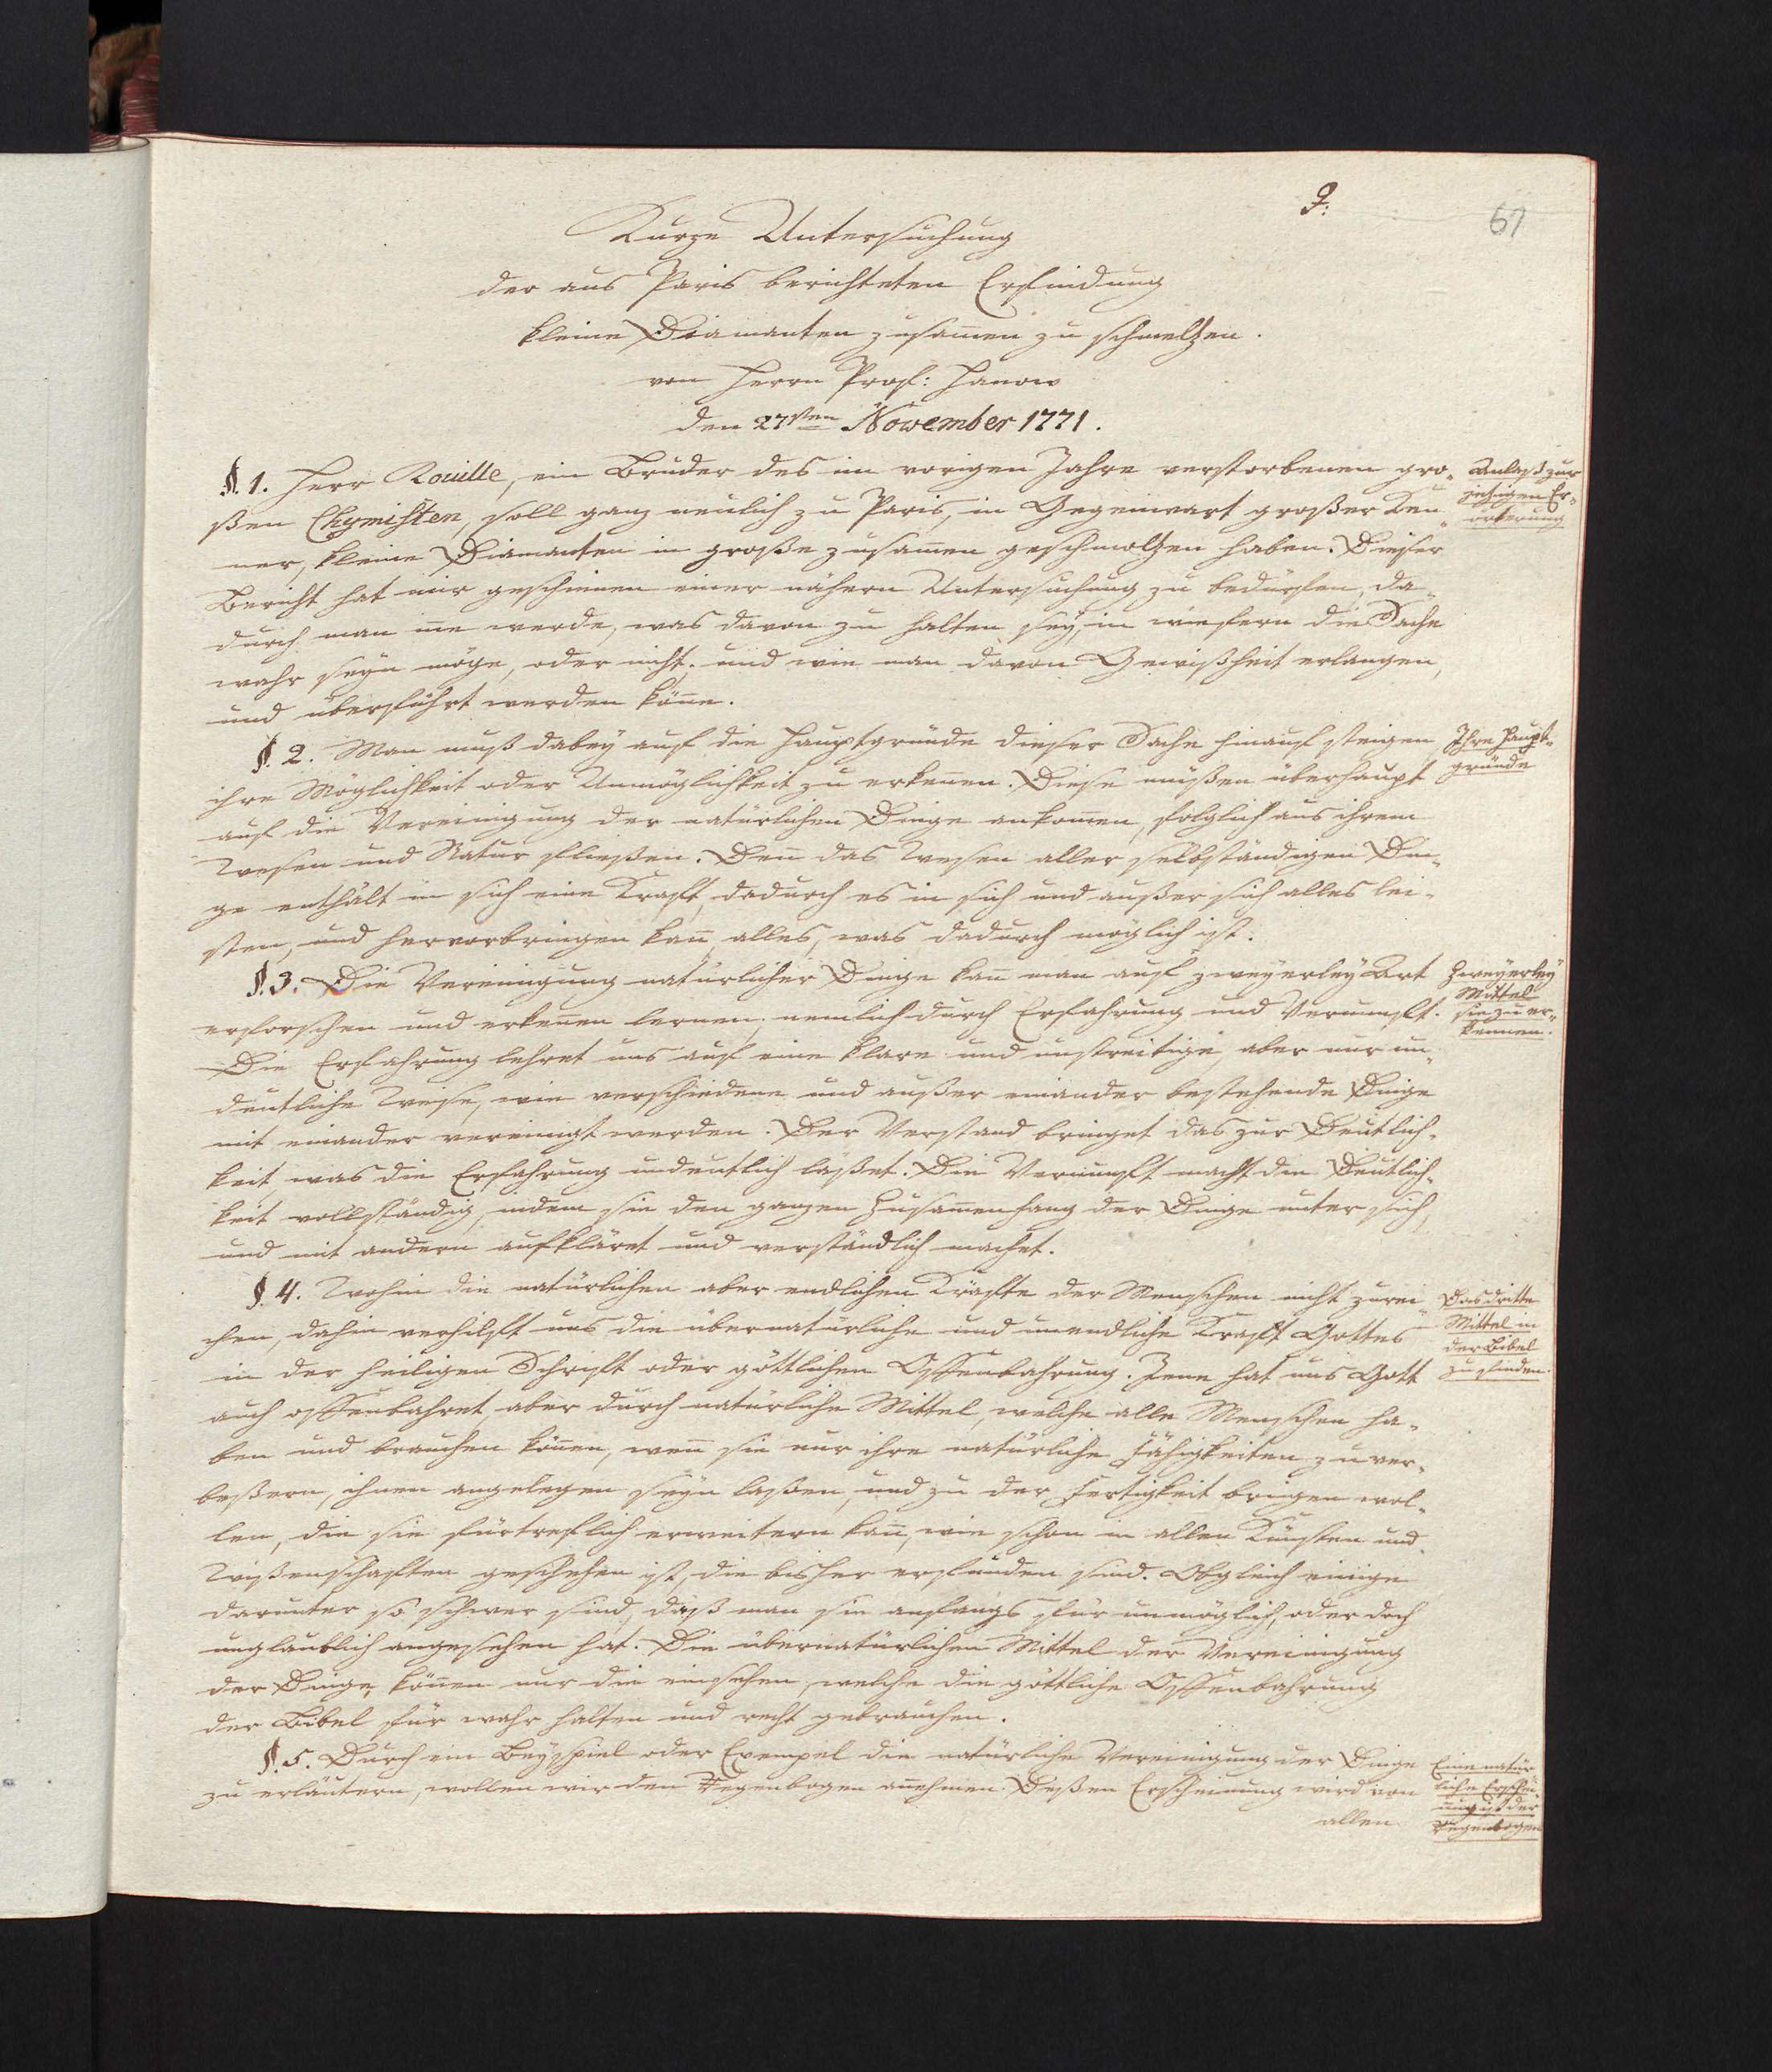 9.
61
Kurze Untersuchung
der aus Paris berichteten Erfindung
kleine Diamanten zusam̅en zu schmeltzen.
von Herrn Prof: Hanow
den 27sten November 1771.
§. 1. Herr Rouille, ein Bruder des im vorigen Jahre verstorbenen gro-
ßen Chymisten, soll ganz neulich zu Paris, in Gegenwart großer Ken-
ner, kleine Diamanten in große zusam̅en geschmoltzen haben. Dieser
Bericht hat mir geschienen einer nähern Untersuchung zu bedürfen, da-
durch man in̅e werde, was davon zu halten sey, in wiefern die Sache
wahr seyn möge, oder nicht; und wie man davon Gewißheit erlangen,
und überführt werden kön̅e.
Anlaß zur
jetzigen Er-
örterung
§. 2. Man muß dabey auf die Hauptgründe dieser Sache hinauf steigen
ihre Möglichkeit oder Unmöglichkeit zu erken̅en. Diese müßen überhaupt
auf die Vereinigung der natürlichen Dinge ankom̅en, folglich aus ihrem
Wesen und Natur fließen. Den̅ das Wesen aller selbständigen Din-
ge enthält in sich eine Kraft, dadurch es in sich und außer sich alles lei-
sten, und hervorbringen kan̅, alles, was dadurch möglich ist.
Ihre Haupt-
gründe
§. 3. Die Vereinigung natürlicher Dinge kan̅ man auf zweyerley Art
erforschen und erken̅en lernen; nemlich durch Erfahrung und Vernunft.
Die Erfahrung lehret uns auf eine klare und unstreitige, aber nur un-
deutliche Weise, wie verschiedene und außer einander bestehende Dinge
mit einander vereinigt werden. Der Verstand bringet das zur Deutlich-
keit, was die Erfahrung undeutlich läßet. Die Vernunft macht die Deutlich-
keit vollständig, indem sie den ganzen Zusam̅enhang der Dinge unter sich,
und mit andern aufkläret und verständlich machet.
Zweyerley
Mittel
sie zu er-
kennen.
§. 4. Wohin die natürlichen aber endlichen Kräfte der Menschen nicht zurei-
chen, dahin verhilft uns die übernatürliche und unendliche Kraft Gottes
in der heiligen Schrift oder göttlichen Offenbahrung. Jene hat uns Gott
auch offenbahret, aber durch natürliche Mittel, welche alle Menschen ha-
ben und brauchen kön̅en, wen̅ sie nur ihre natürliche Fähigkeiten zu ver-
beßern, ihnen angelegen seyn laßen, und zu der Fertigkeit bringen wol-
len, die sie fürtreflich erweitern kan̅, wie schon in allen Künsten und
Wißenschaften geschehen ist, die bisher erfunden sind. Obgleich einige
darunter so schwer sind, daß man sie anfangs für unmöglich, oder doch
unglaublich angesehen hat. Die übernatürlichen Mittel der Vereinigung
der Dinge, kön̅en nur die einsehen, welche die göttliche Offenbahrung
der Bibel für wahr halten und recht gebrauchen.
Das dritte
Mittel in
der Bibel
zu finden.
§. 5. Durch ein Beyspiel oder Exempel die natürliche Vereinigung der Dinge
zu erläutern, wollen wir den Regenbogen an̅ehmen. Deßen Erscheinung wird von
allen
Eine natür-
liche Erschei-
nung ist der
Regenbogen